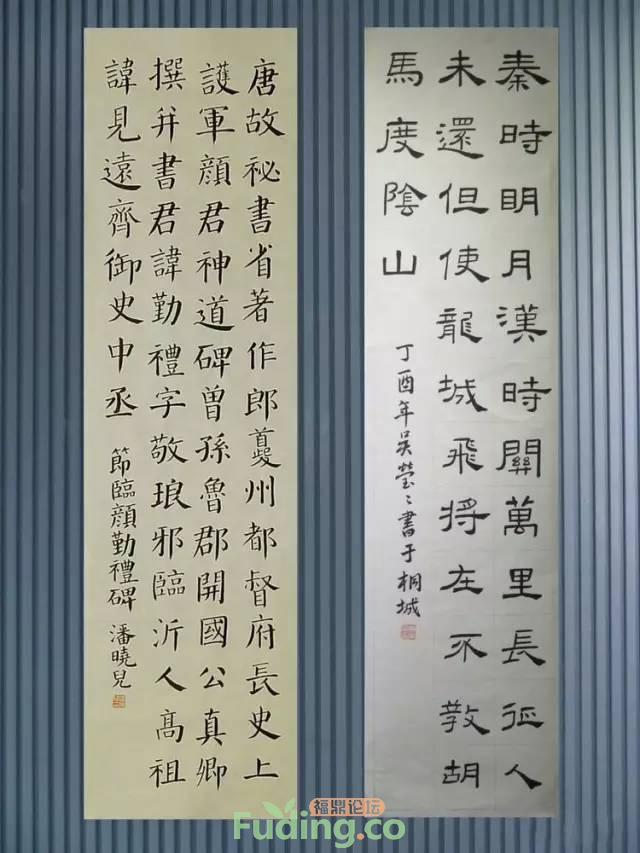 秦時眀月漢時關萬里長征人
未還但使龍城飛將在不教胡
馬度陰山
丁酉年吴瑩〻書于桐城
唐故祕書省著作郎夔州都督府長史上
護軍顏君神道碑曾孫魯郡開國公真卿
撰并書君諱勤禮字敬琅邪臨沂人髙祖
諱見遠齊御史中丞
節臨顏勤禮碑 潘曉兒
福鼎论坛
Fuding.co